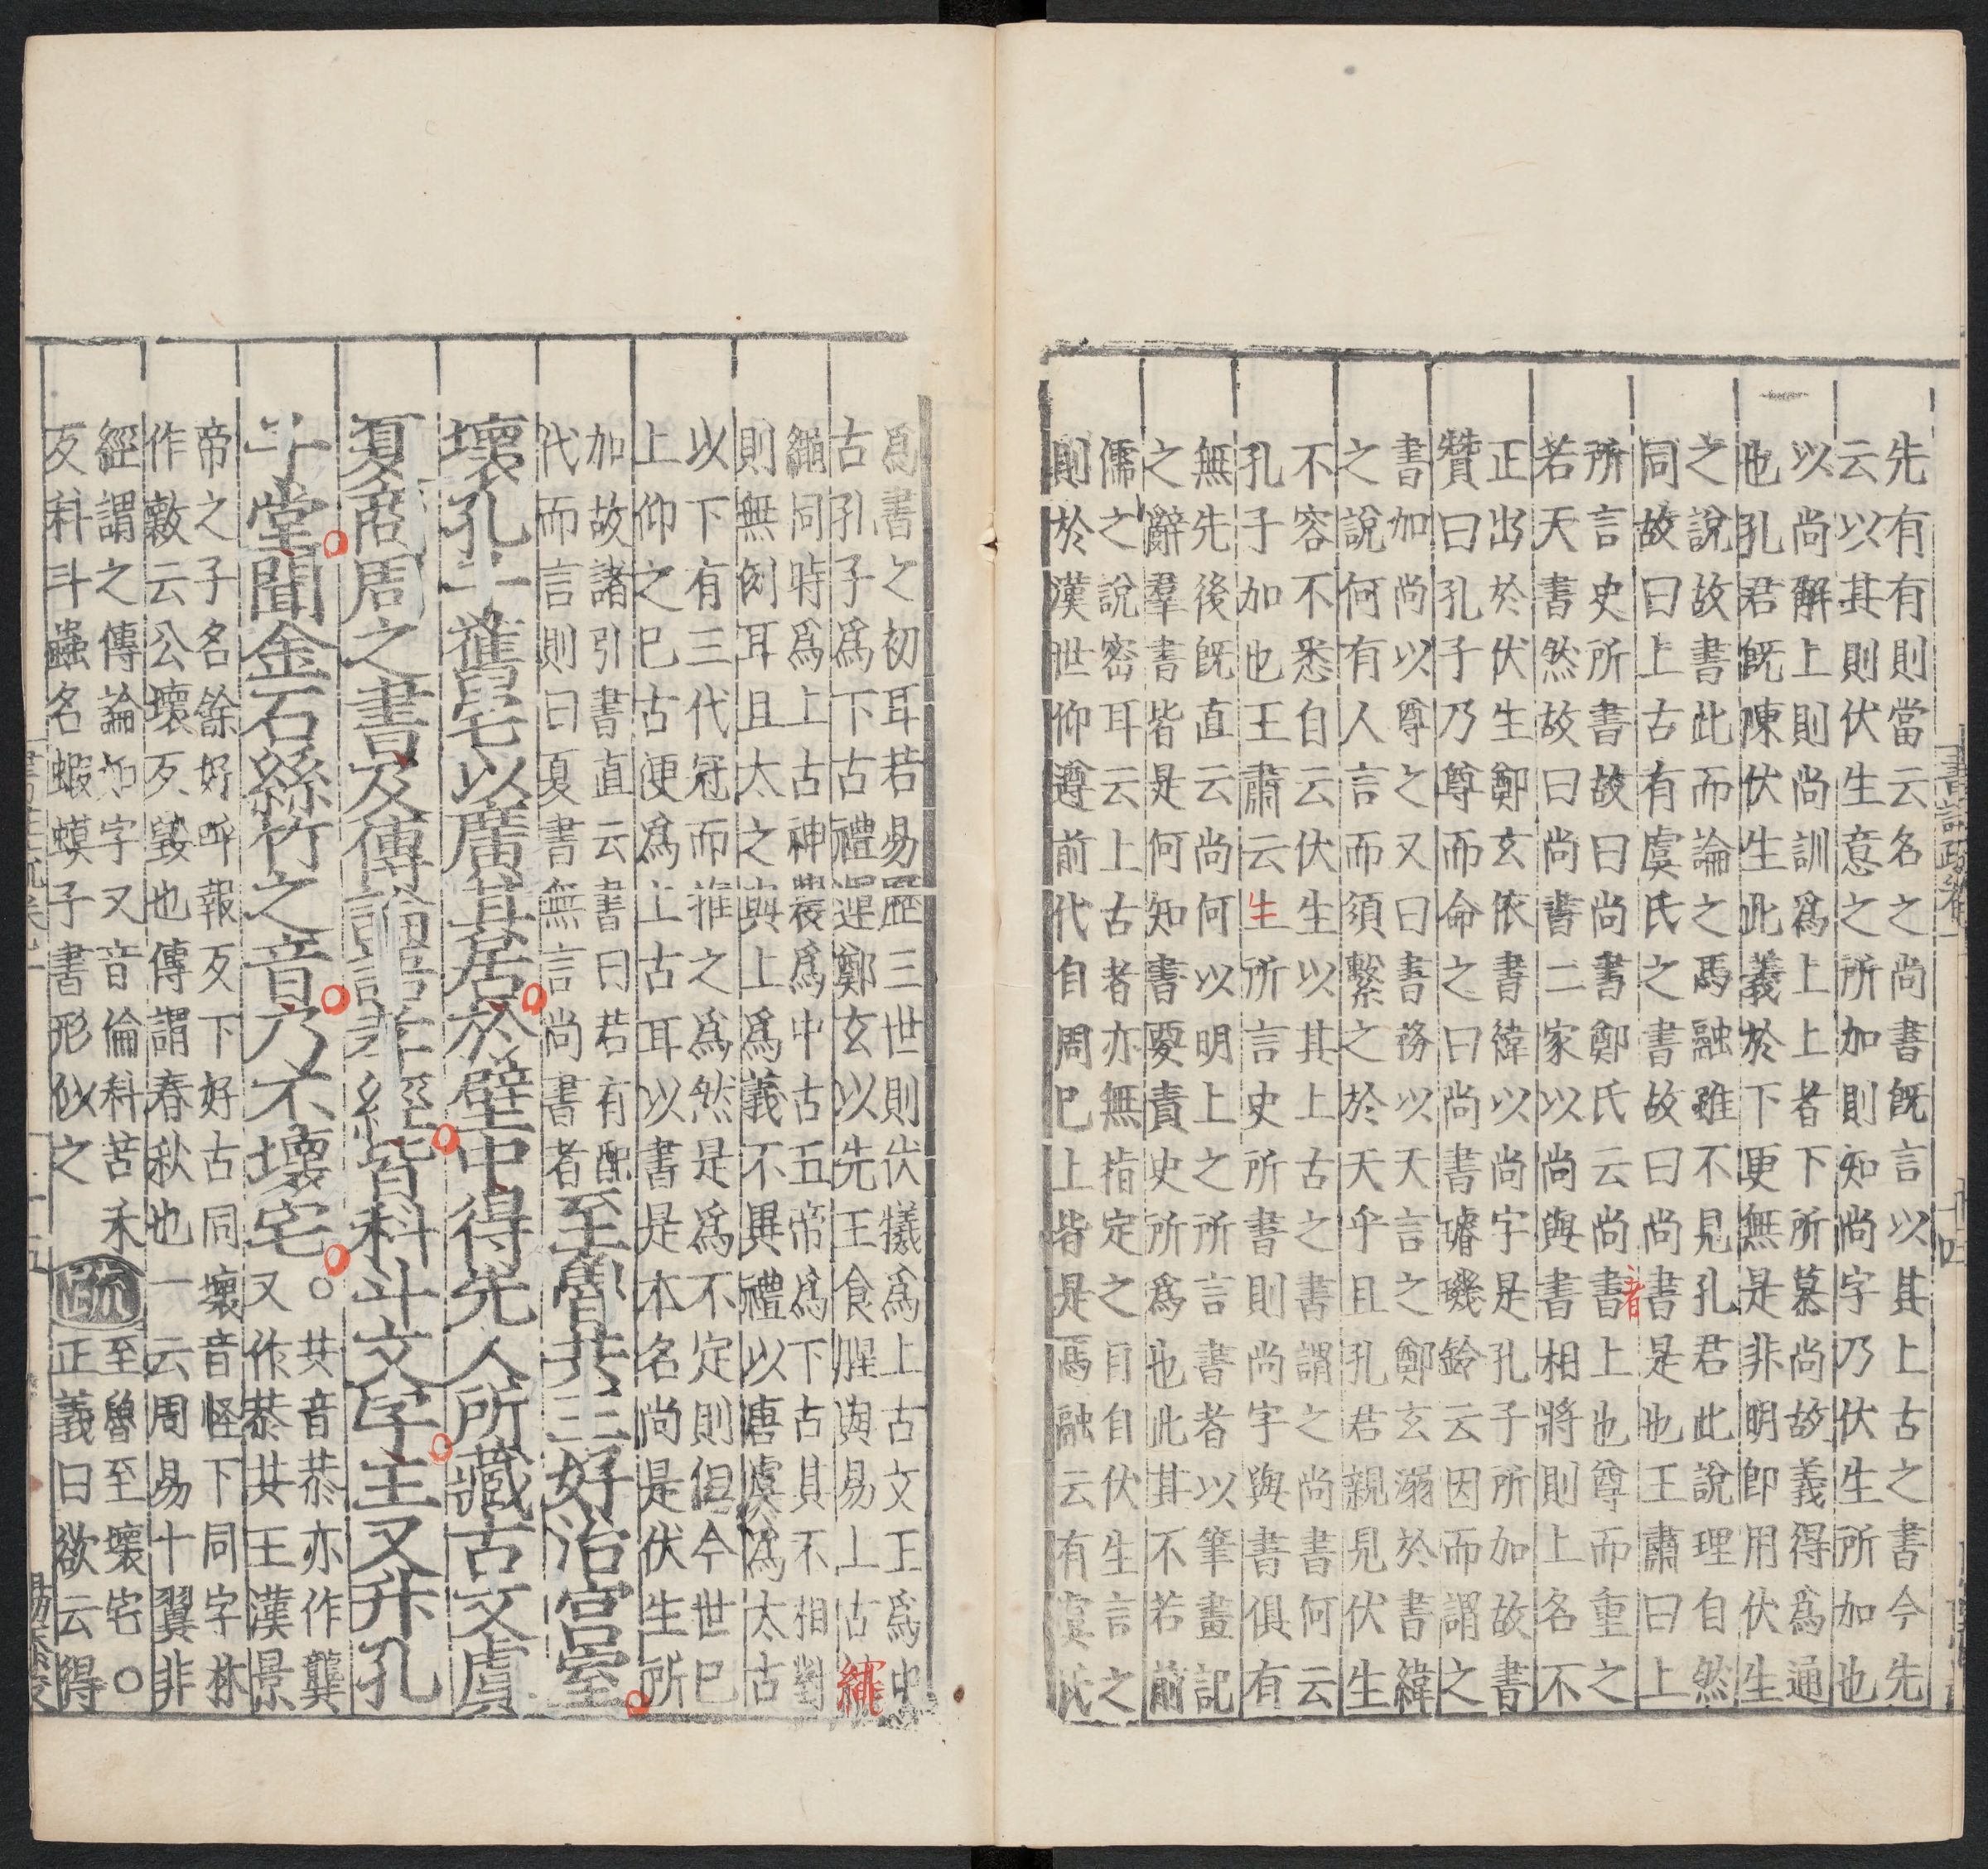 先有有則當云名之尚書旣言以其上古之書今先
云以其則伏生意之所加則知尚字乃伏生所加也
以尚解上則尚訓爲上上者下所慕尚故義得爲通
也孔君旣陳伏生此義於下更無是非明即用伏生
之說故書此而論之馬融雖不見孔君此說理自然
同故曰上古有虞氏之書故曰尚書是也王肅曰上
所言史所書故曰尚書鄭氏云尚書上也尊而重之
若天書然故曰尚書二家以尚與書相將則上名不
正出於伏生鄭玄依書緯以尚字是孔子所加故書
贊曰孔子乃尊而命之曰尚書璿璣鈐云因而謂之
書加尚以尊之又曰書務以天言之鄭玄溺於書緯
之說何有人言而須繫之於天乎且孔君親見伏生
不容不悉自云伏生以其上古之書謂之尚書何云
孔子加也王肅云生所言史所書則尚字與書俱有
無先後旣直云尚何以明上之所言書者以筆畫記
之辭羣書皆是何知書要責史所爲也此其不若前
儒之說密耳云上古者亦無指定之目自伏生言之
則於漢世仰遵前代自周已上皆是馬融云有虞氏
爲書之初耳若易歷三世則伏犧爲上古文王爲中
古孔子爲下古禮運鄭玄以先王食腥與易上古
同時爲上古神農爲中古五帝爲下古其不相對
則無例耳且太之與上爲義不異禮以唐虞爲太古
以下有三代冠而推之爲然是爲不定則但今世已
上仰之已古便爲上古耳以書是本名尚是伏生所
加故諸引書直云書曰若有配
代而言則曰夏書無言尚書者
至魯共王好治宮室
壞孔子舊宅以廣其居於壁中得先人所藏古文虞
夏商周之書及傳論語孝經皆科斗文字王又升孔
子堂聞金石絲竹之音乃不壞宅
○共音恭亦作龔
又作恭共王漢景
帝之子名餘好呼報反下好古同壞音怪下同字林
作𣀩云公壞反毀也傳謂春秋也一云周易十翼非
經謂之傳論如字又音倫科苦禾
反科斗蟲名蝦蟆子書形似之
疏
至魯至壞宅○
正義曰欲云得